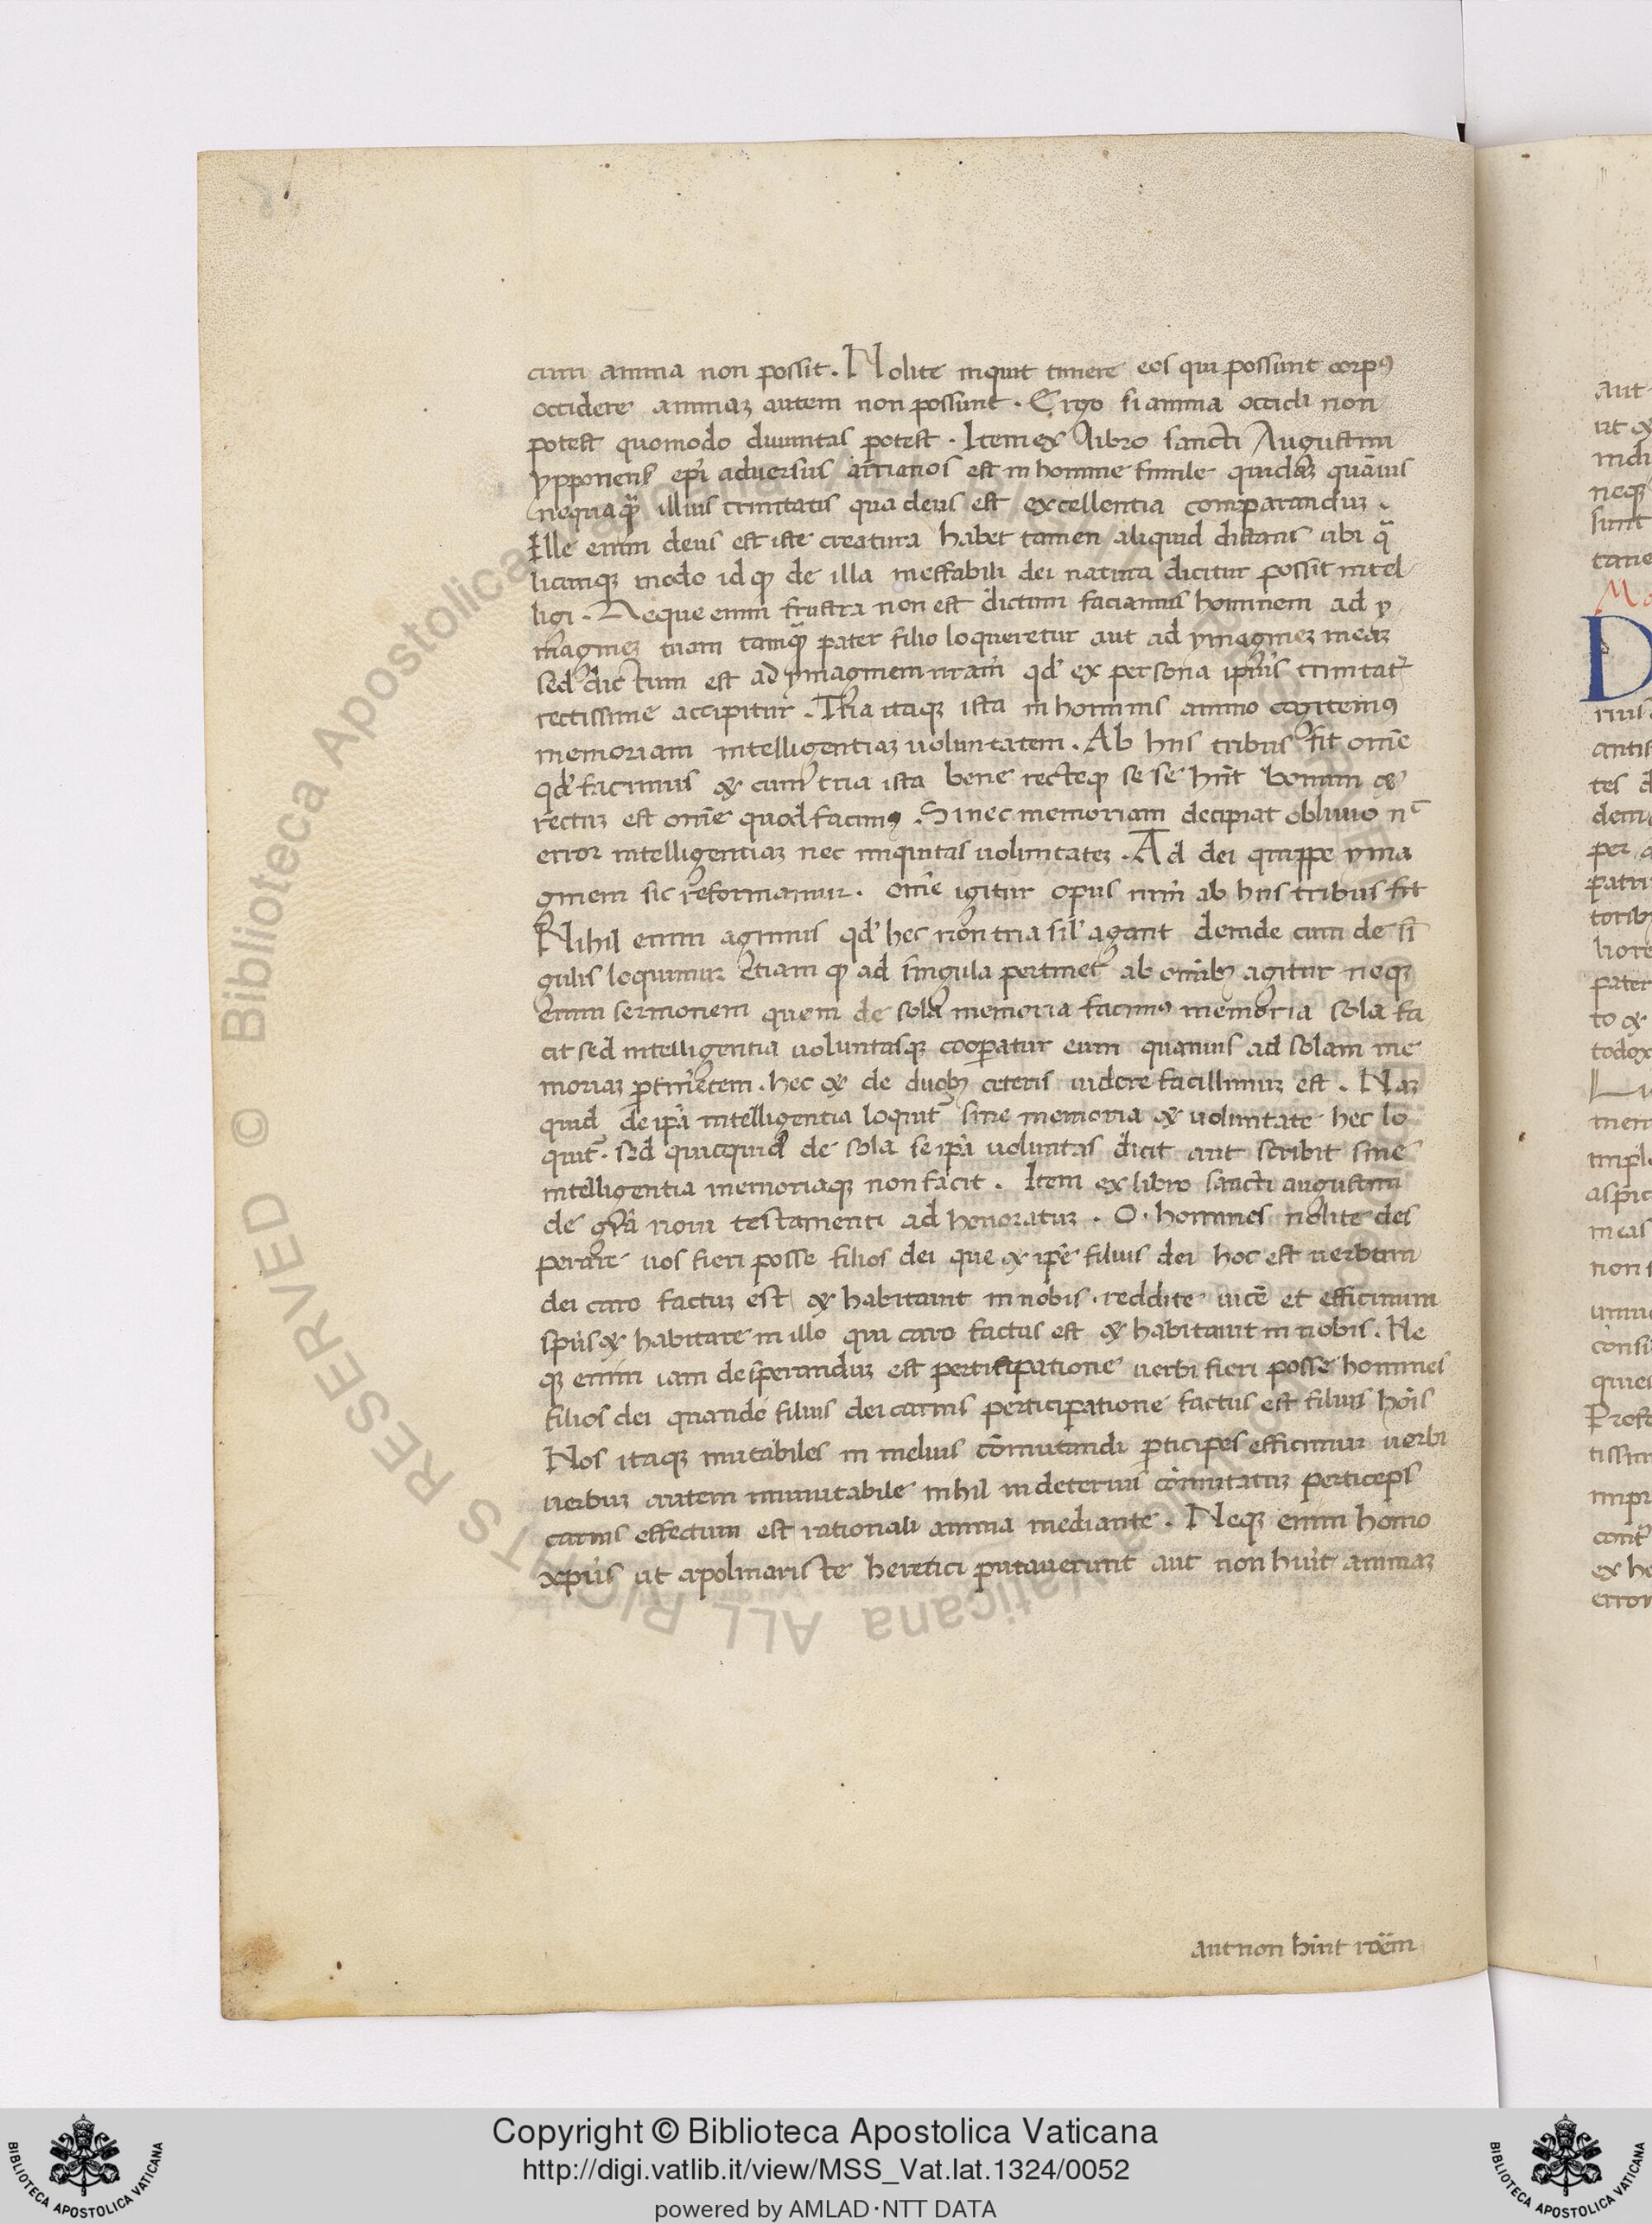 cum anima non possit. Nolite inquit timere eos qui possunt corpꝯ
occidere animaꝫ autem non possunt. Ergo si anima occidi non
potest quomodo diuinitas potest. Item ex libro sancti Augustini
ypponensꝭ ep̄i adversus arrianos est in homine simile quiddaꝫ quāuis
nequaqꝫ illius trinitatis qua deus est excellentia comparanduꝫ.
Ille enim deus est iste creatura habet tamen aliquid distans ubi qᷓ
licumqꝫ modo id qꝫ de illa ineffabili dei natura dicitur possit intel
ligi. Neque enim frustra non est dictum faciamus hominem ad y
magineꝫ tuam tamqᷓ pater filio loqueretur aut ad ymagineꝫ meaꝫ
sed dictum est ad ymaginem nr̄am qd̛ ex persona ip̄ius trinitatꝭ
rectissime accipitur. Tria itaqꝫ ista in hominis animo cogitemꝯ
memoriam intelligentiaꝫ uoluntatem. Ab hiis tribus fit om̄e
qd̛ facimus & cum tria ista bene recteqꝫ se se hn̄t bonum &
rectuꝫ est om̄e quod facimꝯ. Si nec memoriam decipiat obliuio nᶜ
error intelligentiaꝫ nec iniquitas uoluntateꝫ. Ad dei quippe yma
ginem sic reformamur. om̄e igitur opus nr̄m ab hiis tribus fit
Nihil enim agimus qd̛ hec non tria sil̛ agant deinde cum de sī
gulis loquimur etiam qꝫ ad singula pertinet ab om̄ibꝫ agitur neqꝫ
enim sermonem quem de sola memoria facimꝯ memoria sola fa
cit sed intelligentia uoluntasqꝫ cooꝑatur eum quamuis ad solam me
moriaꝫ ꝑtinentem. hec & de duobꝫ ceteris uidere facillimuꝫ est. Naꝫ
quid de ip̄a intelligentia loquit᷑ sine memoria & uoluntate hec lo
quit᷑. sed quicquid de sola se ip̄a uoluntas dicit aut scribit sine
intelligentia memoriaqꝫ non facit. Item ex libro sancti augustini
de gr̄a noui testamenti ad honoratuꝫ. O. homines nolite des
perare uos fieri posse filios dei que & ip̄e filius dei hoc est uerbum
dei caro factuꝫ est & habitauit in nobis. reddite uicē et efficimum
sp̄us & habitare in illo qui caro factus est & habitauit in nobis. Ne
qꝫ enim iam desperanduꝫ est perticipatione uerbi fieri posse homines
filios dei quando filius dei carnis perticipatione factus est filius hoīs
Nos itaqꝫ mutabiles in melius cōmutandi ꝑticipes efficimur uerbi
uerbuꝫ autem inmutabile nihil in deterius cōmutatuꝫ perticeps
carnis effectum est rationali anima mediante. Neqꝫ enim homo
xp̄us ut apolinariste heretici putauerunt aut non huit animaꝫ
aut non hūit roēm
Copyright © Biblioteca Apostolica Vaticana
http://digi.vatlib.it/view/MSS_Vat.lat.1324/0052
powered by AMLAD·NTT DATA